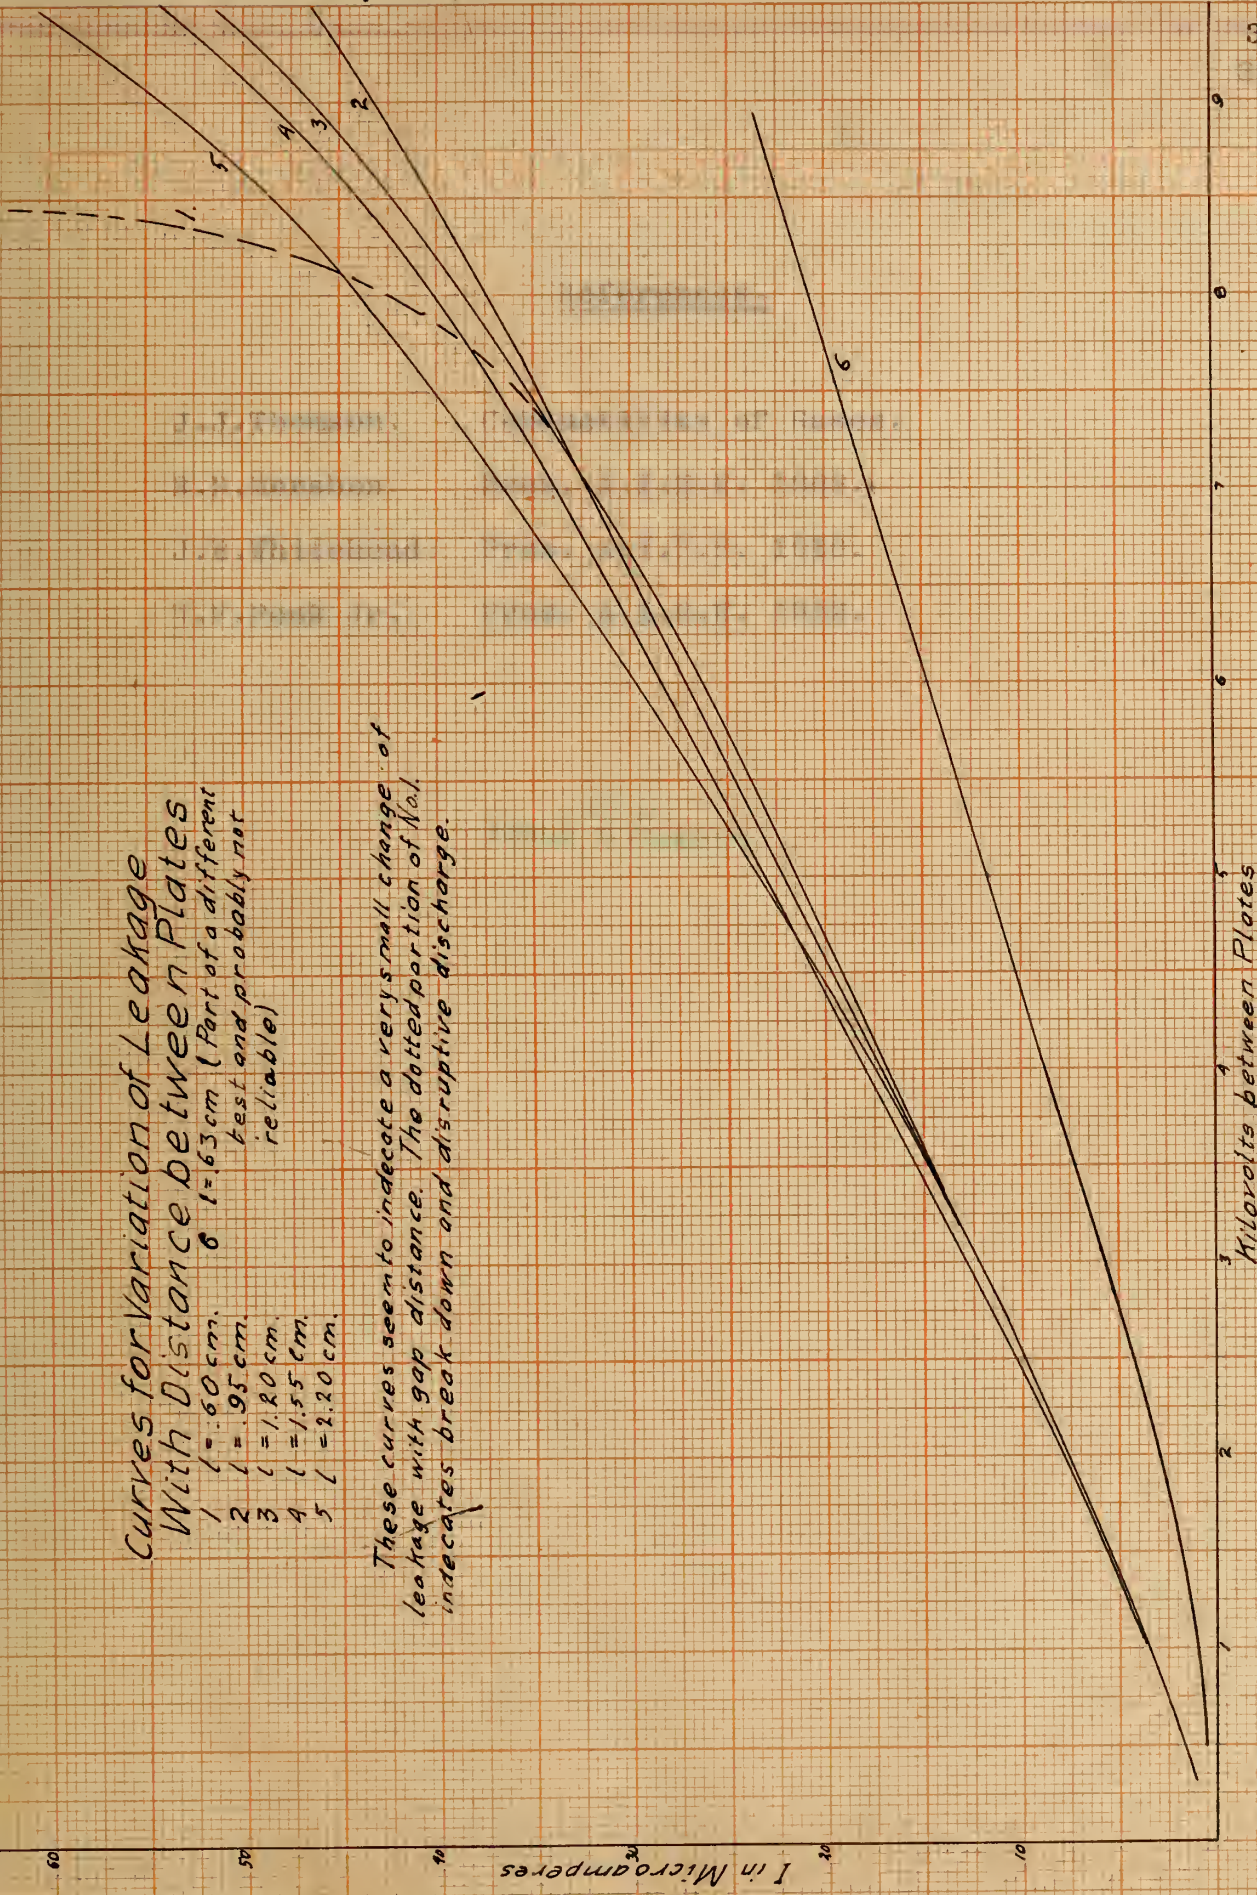 Curves for Variation of Leakage
With Distance between Plates
1 l = .60 cm.
2 l = .95 cm.
3 l = 1.20 cm.
4 l = 1.55 cm.
5 l = 2.20 cm.
6 l = .63 cm (Part of a different
test and probably not
reliable)
These curves seem to indecate a very small change of
leakage with gap distance. The dotted portion of No.1.
indecates break down and disruptive discharge.
1.
5
4
3
2
6
60
50
40
30
20
10
I in Microamperes
1 2 3 4 5 6 7 8 9
Kilovolts between Plates
3